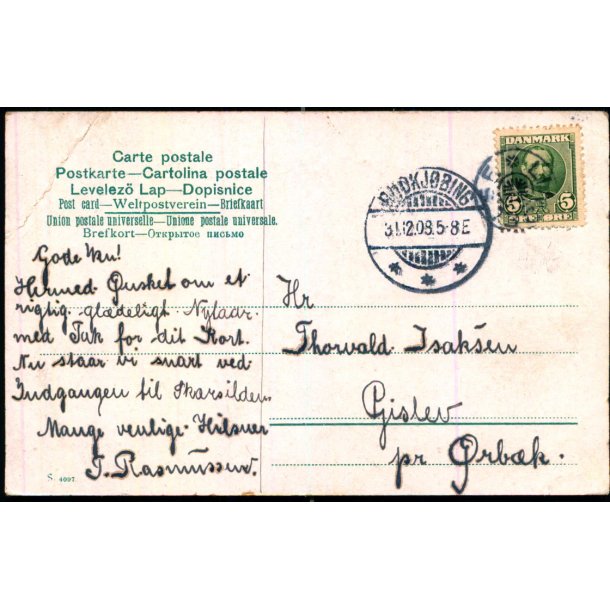 Carte postale
Postkarte—Cartolina postale
Levelező Lap—Dopisnice
Post card—Weltpostverein—Briefkaart
Union postale universelle—Unione postale universale.
Brefkort—Открытое письмо
DANMARK
5 5
ØRE
RUDKJØBING
31.12.08.5-8E
Gode Ven!
Hermed Ønsket om et
rigtig glædeligt Nytaar
med Tak for dit Kort.
Nu staar vi snart ved
Indgangen til
Mange venlige Hilsner
J. Rasmussen.
Hr
Thorvald Isaksen
Gislev
pr Ørbæk.
S. 4097